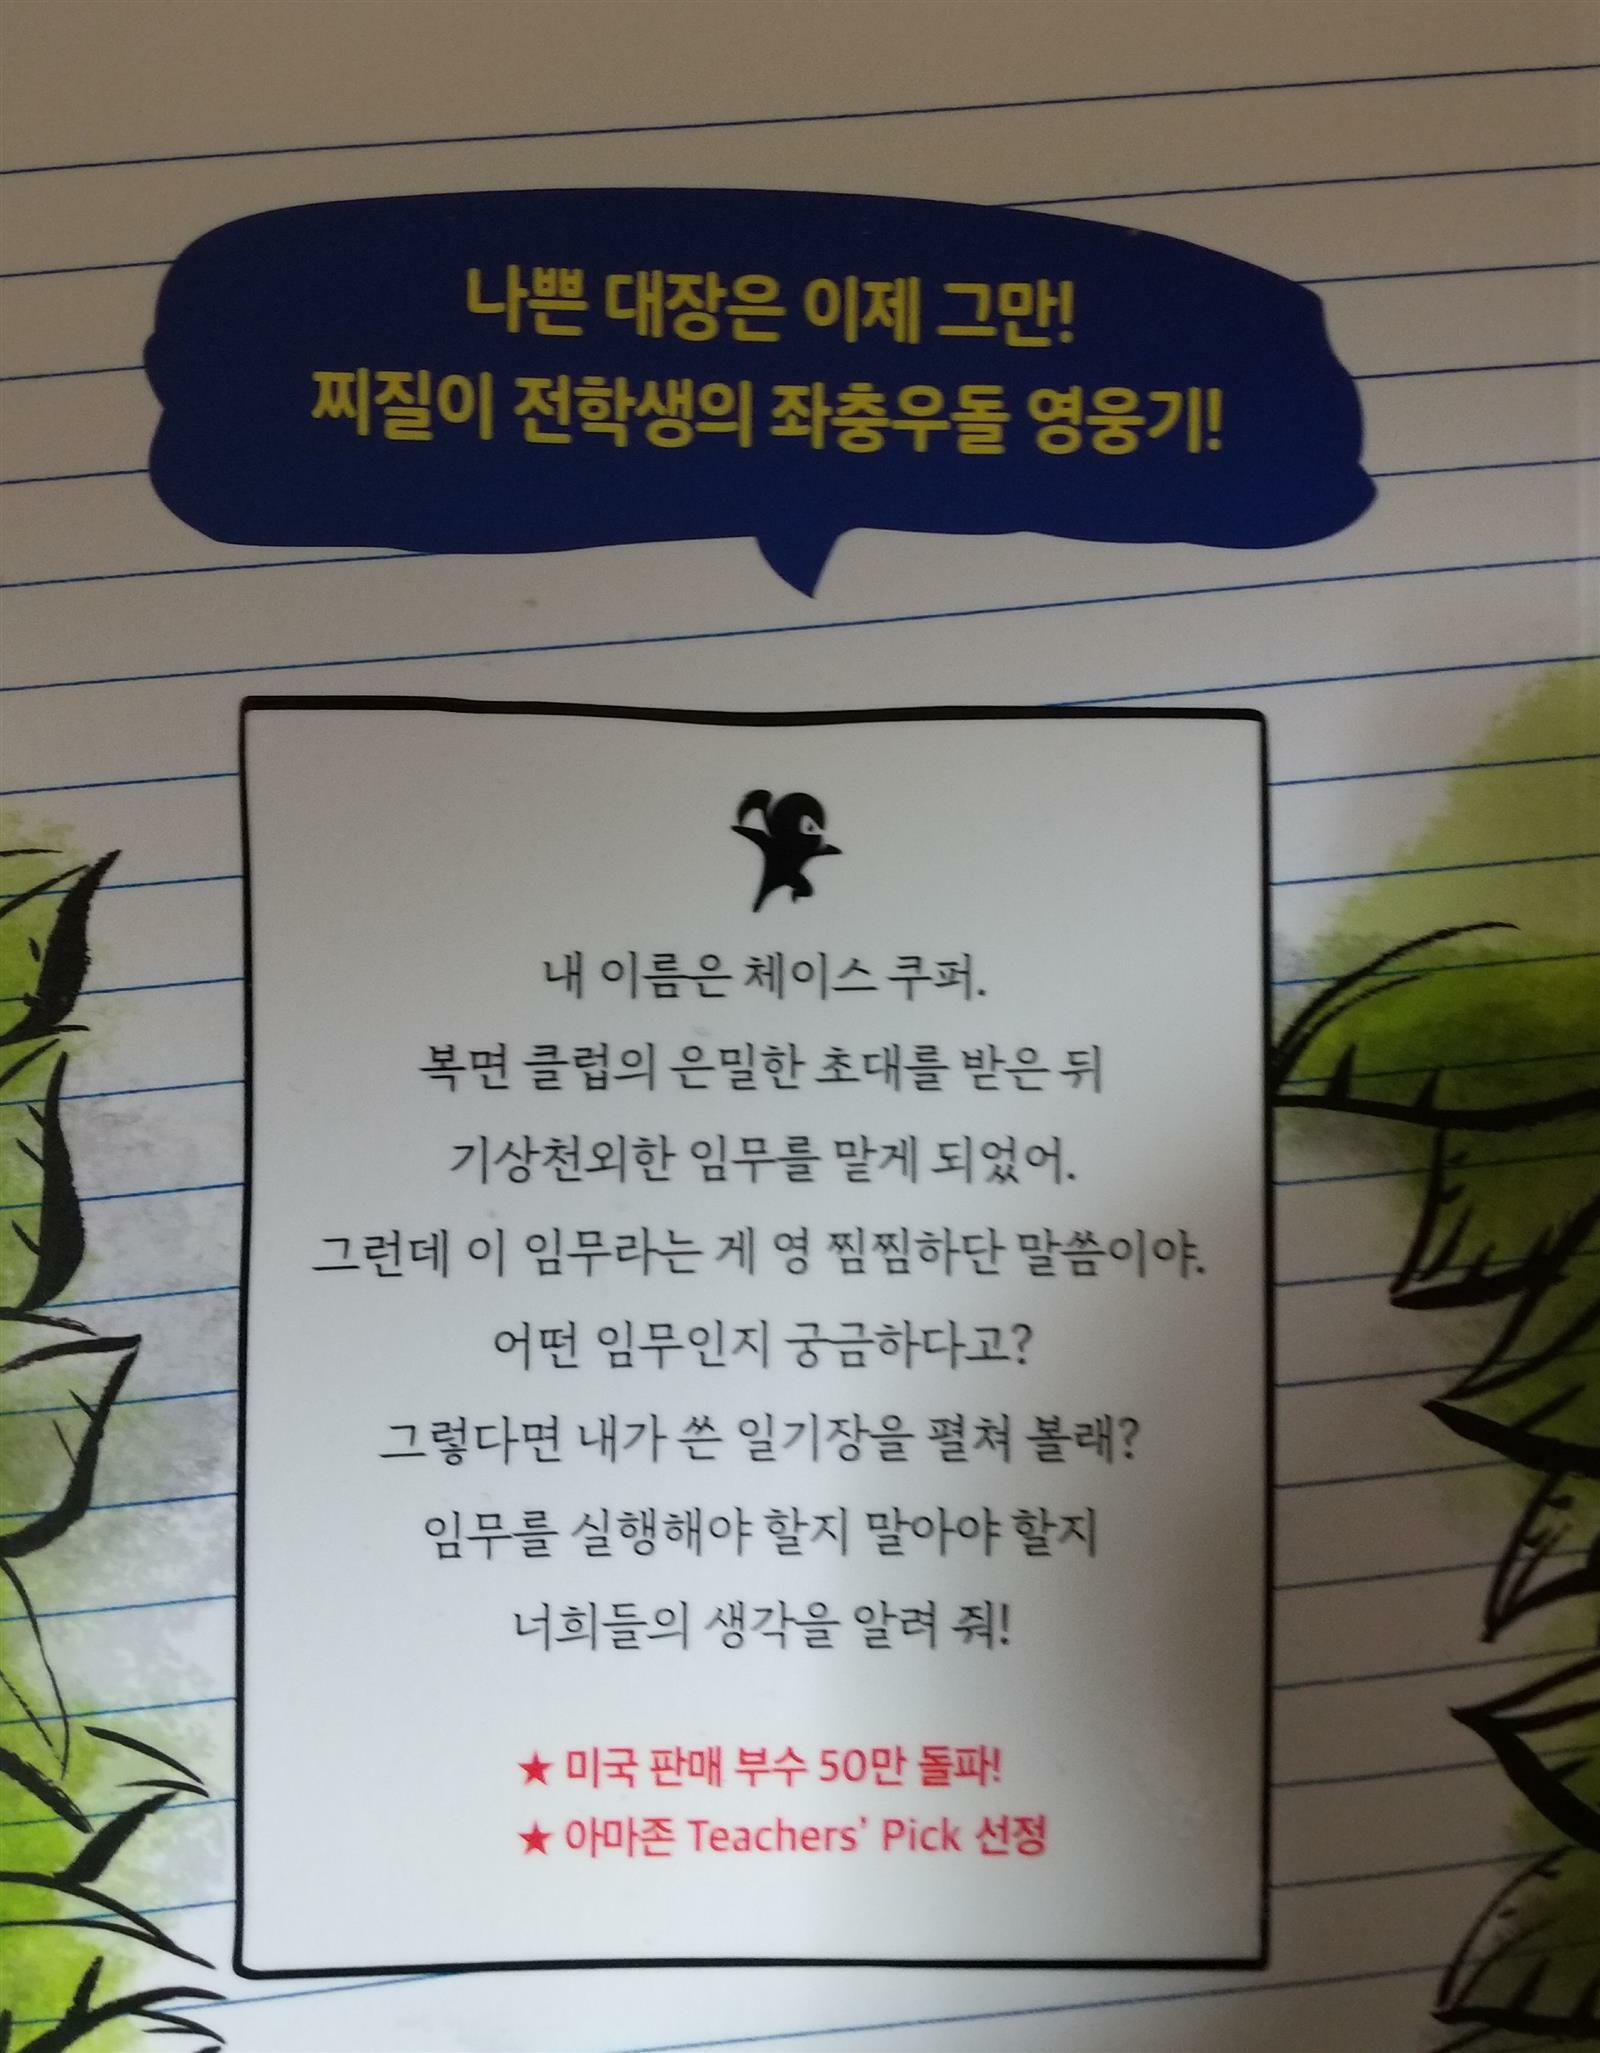 나쁜 대장은 이제 그만!
찌질이 전학생의 좌충우돌 영웅기!
내 이름은 체이스 쿠퍼.
복면 클럽의 은밀한 초대를 받은 뒤
기상천외한 임무를 맡게 되었어.
그런데 이 임무라는 게 영 찜찜하단 말씀이야.
어떤 임무인지 궁금하다고?
그렇다면 내가 쓴 일기장을 펼쳐 볼래?
임무를 실행해야 할지 말아야 할지
너희들의 생각을 알려 줘!
★ 미국 판매 부수 50만 돌파!
★ 아마존 Teachers' Pick 선정